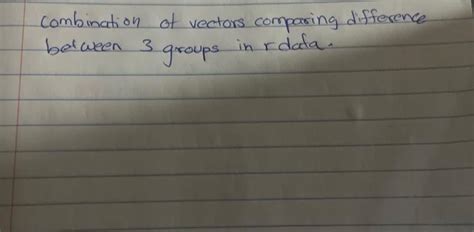 combination of vectors comparing difference
between 3 groups in r data.